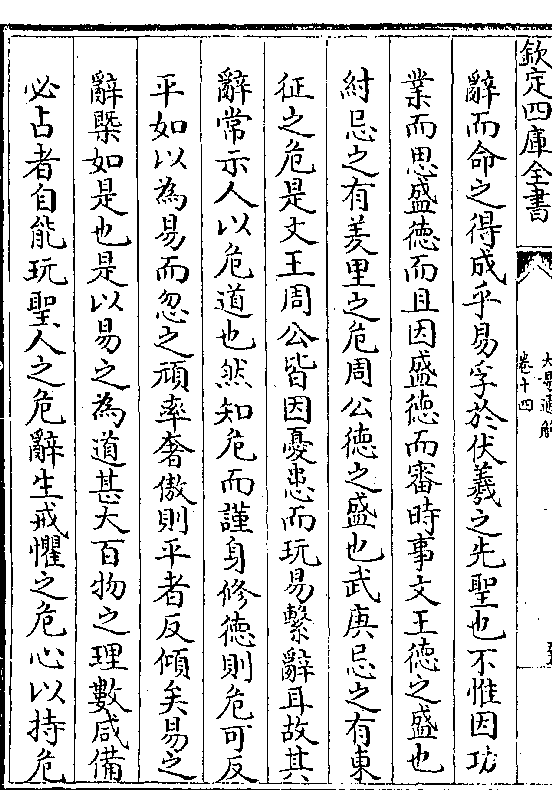 欽定四庫全書
卷十四
辭而命之得成乎易孚於伏羲之先聖也不惟因功
業而思盛徳而且因盛徳而審時事文王徳之盛也
紂忌之有羑里之危周公徳之盛也武庚忌之有東
征之危是文王周公皆因憂患而玩易繫辭耳故其
辭常示人以危道也然知危而謹身修徳則危可反
平如以為易而忽之頑率奢傲則平者反傾矣易之
辭槩如是也是以易之為道甚大百物之理數咸備
必占者自能玩聖人之危辭生戒懼之危心以持危